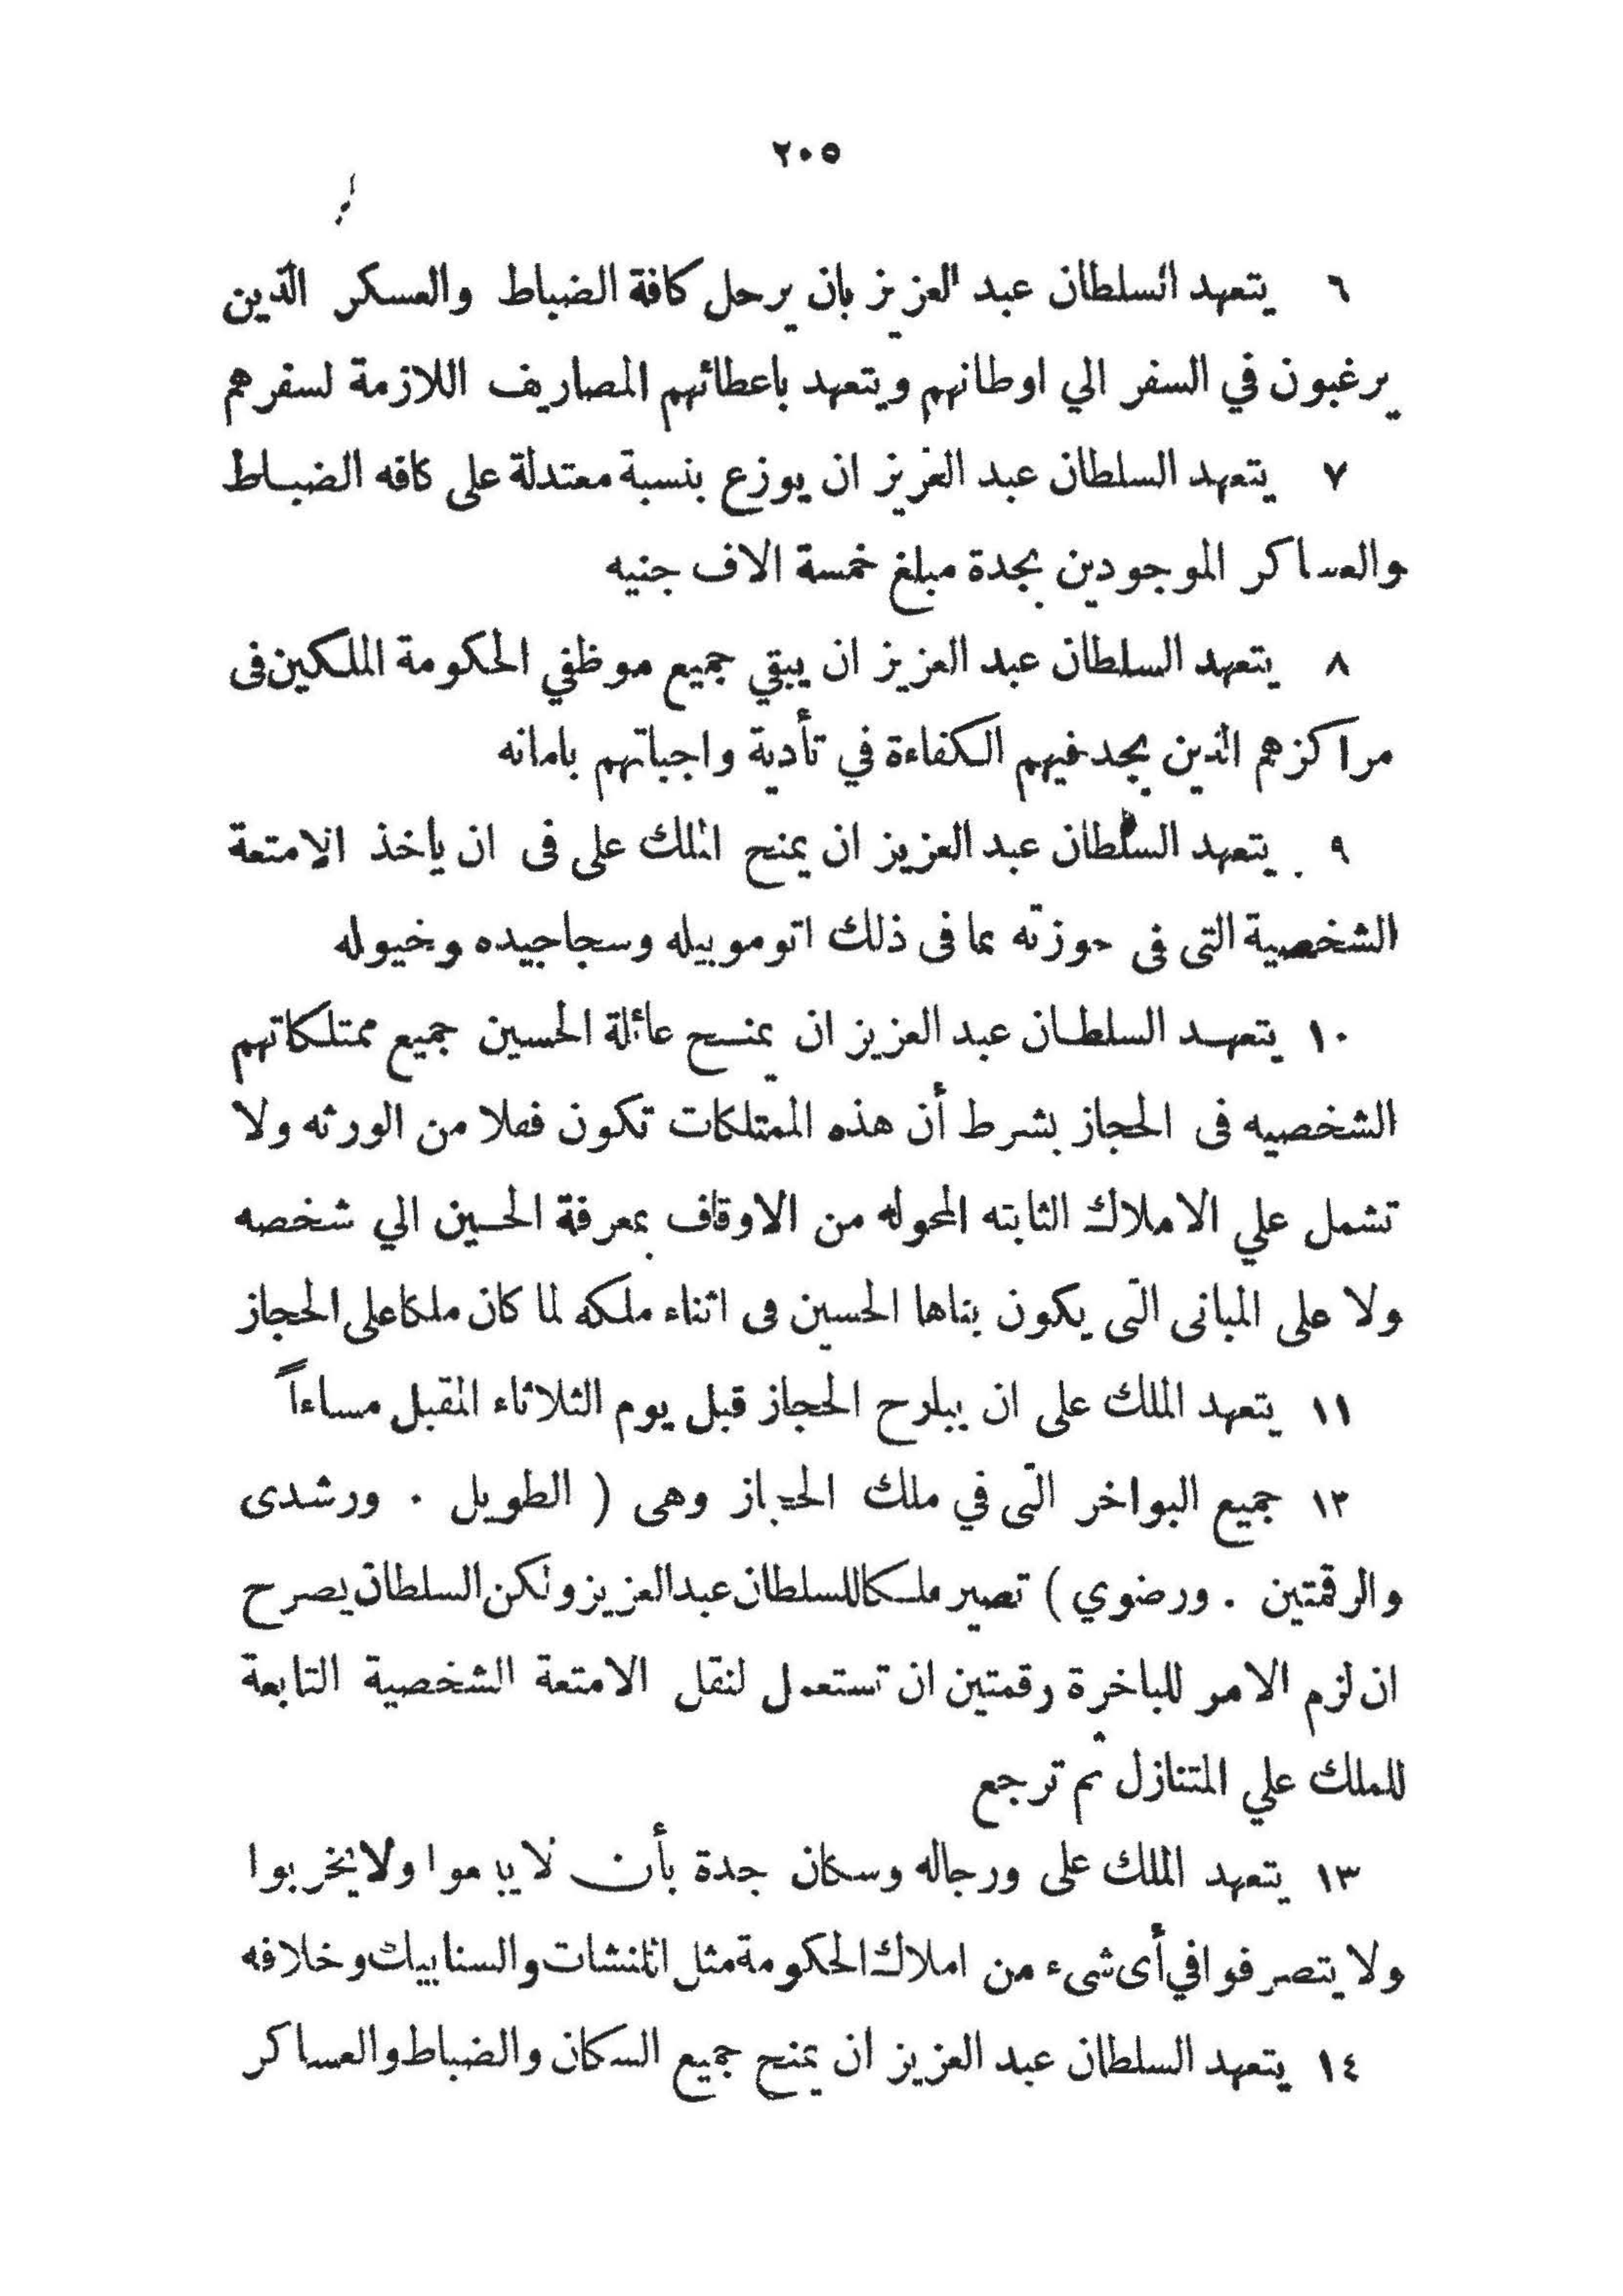 ٢٠٥
٦ يتعهد السلطان عبد العزيز بان يرحل كافة الضباط والعسكر الذين
يرغبون في السفر الي اوطانهم ويتعهد باعطائهم المصاريف اللازمة لسفرهم
٧ يتعهد السلطان عبد العزيز ان يوزع بنسبة معتدلة على كافه الضباط
والعساكر الموجودين بجدة مبلغ خمسة الاف جنيه
٨ يتعهد السلطان عبد العزيز ان يبقي جميع موظفي الحكومة الملكين فى
مراكزهم الذين يجد فيهم الكفاءة في تأدية واجباتهم بامانه
٩ يتعهد السلطان عبد العزيز ان يمنح الملك على فى ان ياخذ الامتعة
الشخصية التى فى حوزته بما فى ذلك اتوموبيله وسجاجيده وخيوله
١٠ يتعهد السلطان عبد العزيز ان يمنح عائلة الحسين جميع ممتلكاتهم
الشخصيه فى الحجاز بشرط أن هذه الممتلكات تكون فعلا من الورثه ولا
تشمل علي الاملاك الثابته المحوله من الاوقاف بمعرفة الحسين الي شخصه
ولا على المبانى التى يكون بناها الحسين فى اثناء ملكه لما كان ملكا على الحجاز
١١ يتعهد الملك على ان يبارح الحجاز قبل يوم الثلاثاء المقبل مساءاً
١٢ جميع البواخر التى في ملك الحجاز وهى ( الطويل . ورشدى
والرقمتين . ورضوي ) تصير ملكا للسلطان عبد العزيز ولكن السلطان يصرح
ان لزم الامر للباخرة رقمتين ان تستعمل لنقل الامتعة الشخصية التابعة
للملك علي المتنازل ثم ترجع
١٣ يتعهد الملك على ورجاله وسكان جدة بأن لا يبيعوا ولا يخربوا
ولا يتصرفوا في أى شىء من املاك الحكومة مثل اللنشات والسنابيك وخلافه
١٤ يتعهد السلطان عبد العزيز ان يمنح جميع السكان والضباط والعساكر